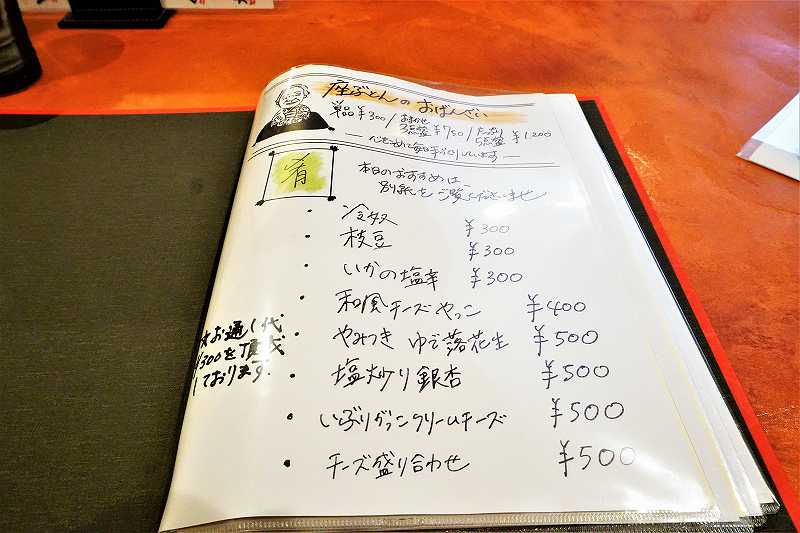 座ぶとんのおばんざい
単品¥300/おまかせ3点盛¥750/たっぷり5点盛¥1,200
心をこめて毎日手づくりしています
肴
本日のおすすめは、
別紙をご覧くださいませ
・冷奴 ¥300
・枝豆 ¥300
・いかの塩辛 ¥300
・和風チーズやっこ ¥400
・やみつきゆで落花生 ¥500
・塩炒り銀杏 ¥500
・いぶりがっこクリームチーズ ¥500
・チーズ盛り合わせ ¥500
お通し代
¥300を頂戴
しております。